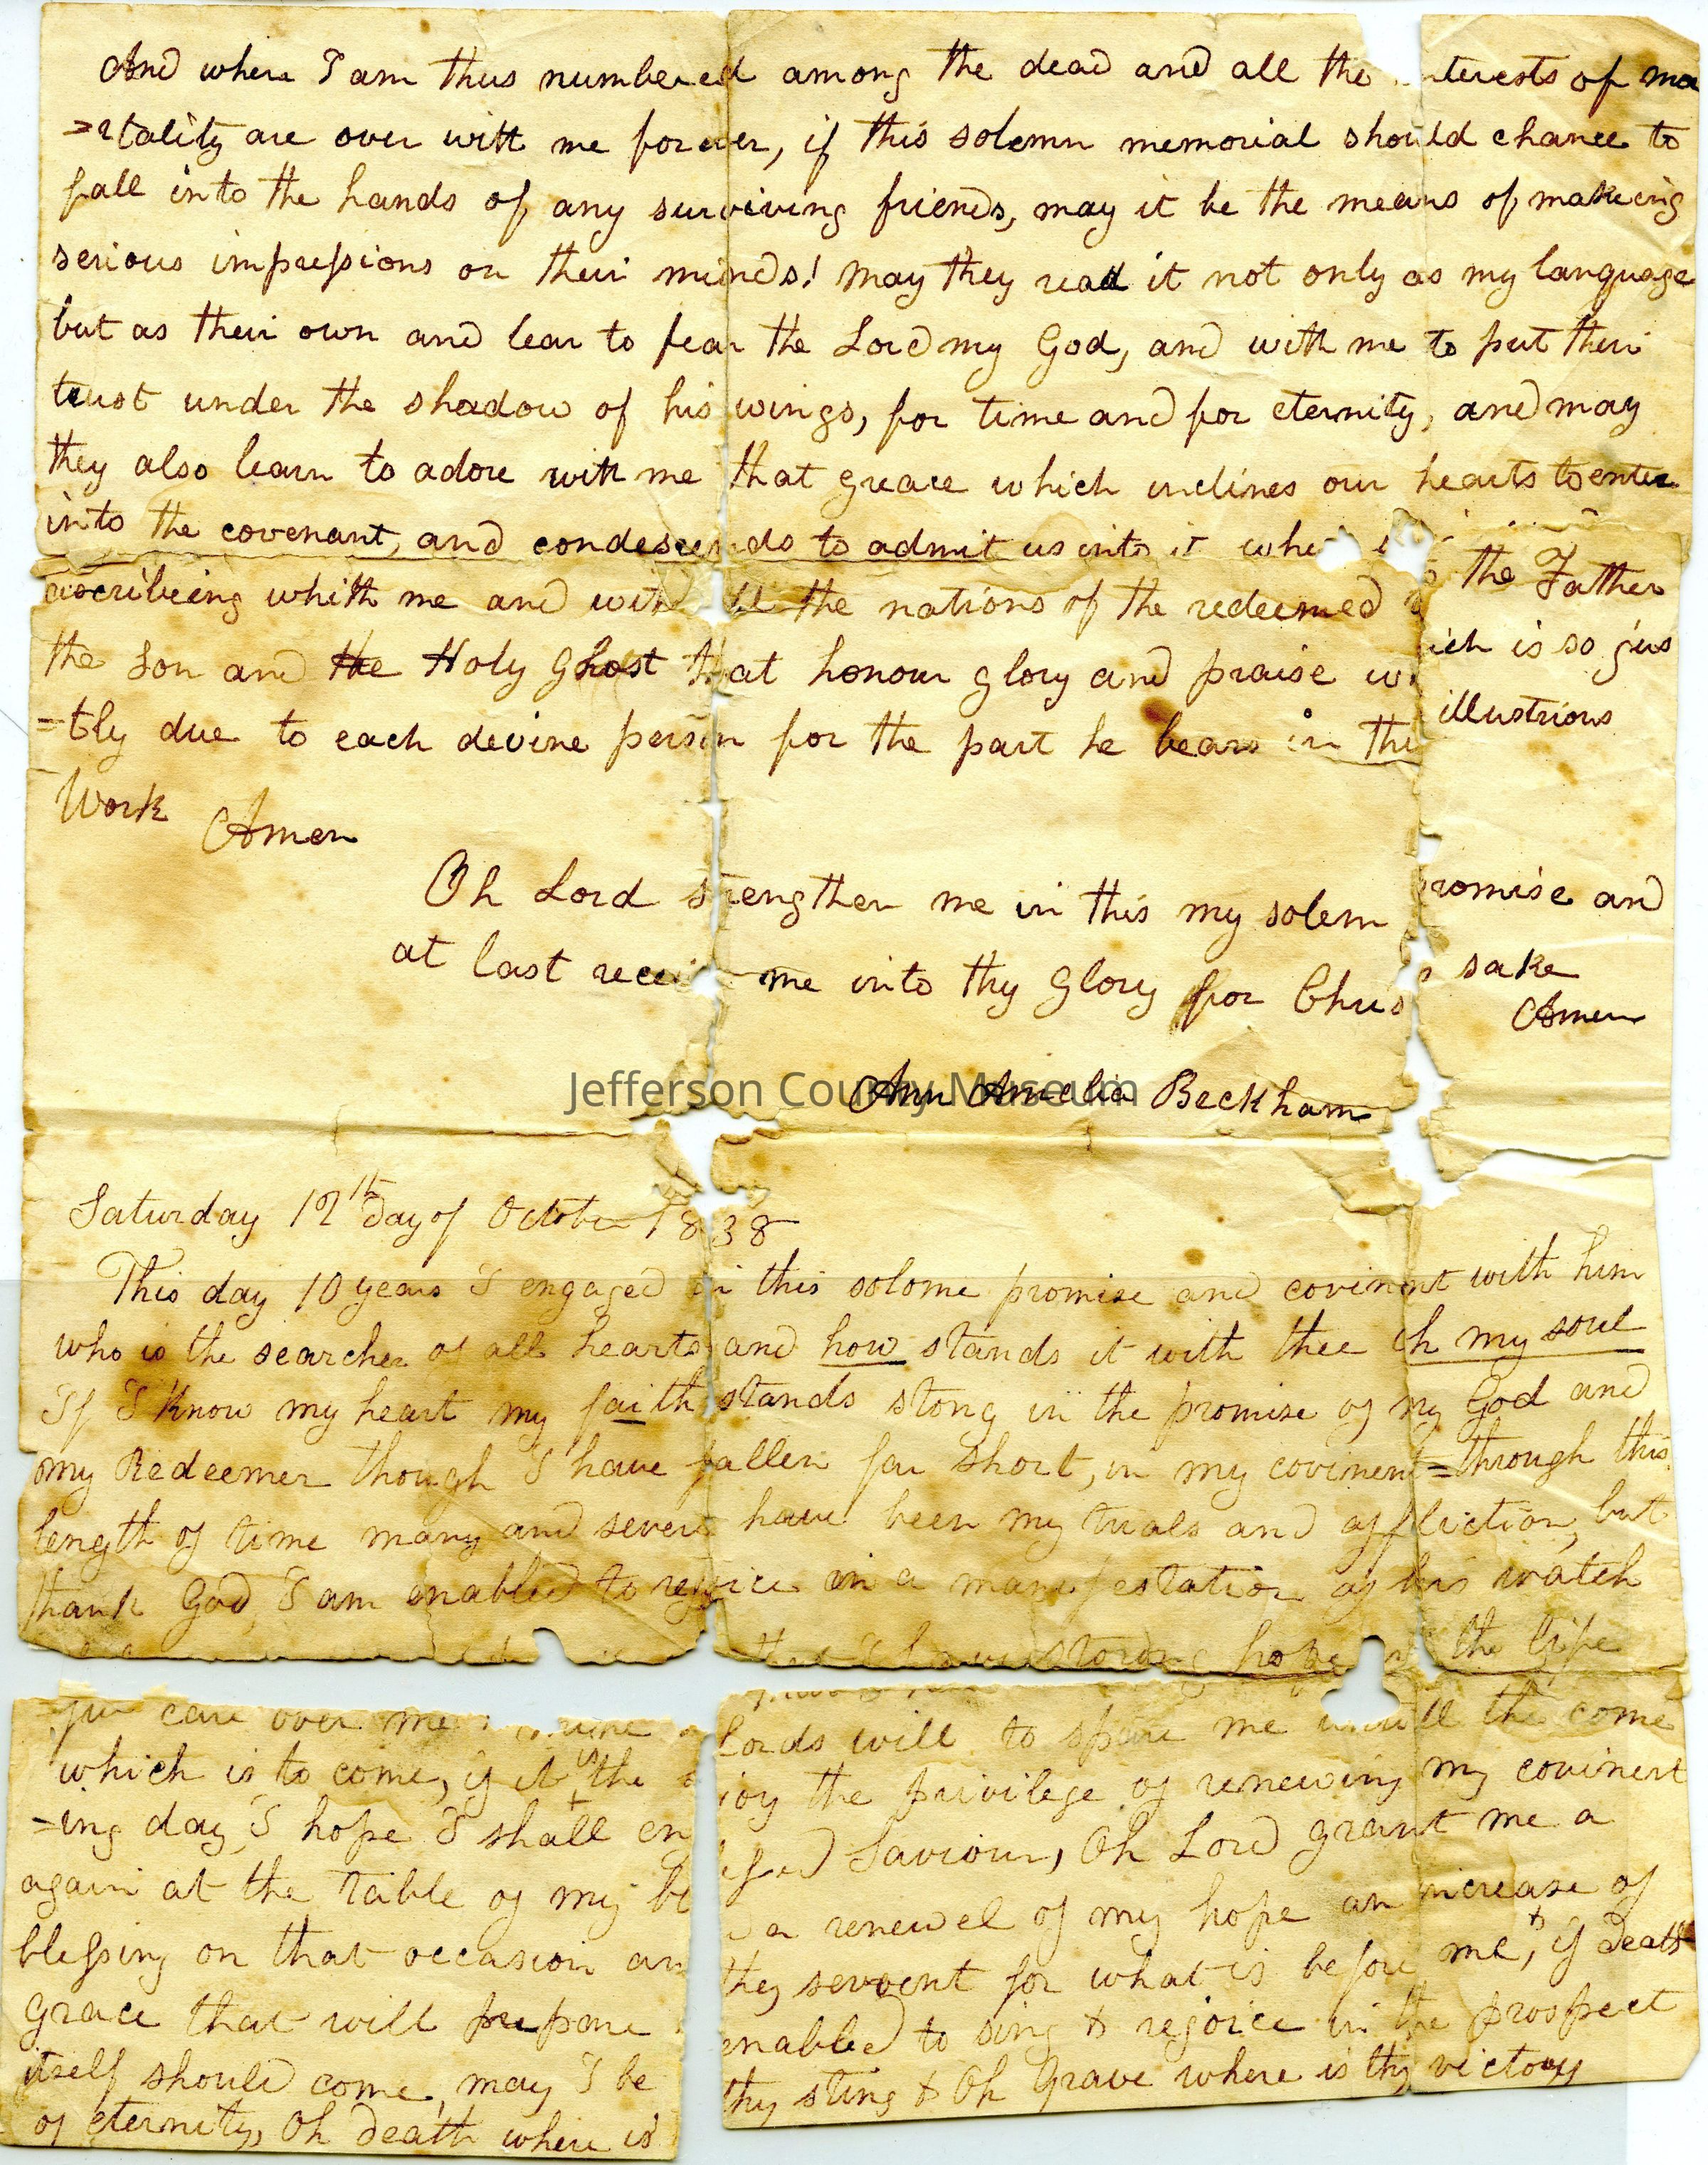 And where I am thus numbered among the dead and all the nterests of mo
=rtality are over with me forever, if this solemn memorial should chance to
fall into the hands of any surviving friends, may it be the means of makeing
serious impressions on their minds! may they read it not only as my language
but as their own and lear to fear the Lord my God, and with me to put their
trust under the shadow of his wings, for time and for eternity, and may
they also learn to adore with me that grace which inclines our hearts to enter
into the covenant, and condescends to admit us into it whe
ascribeing whith me and with all the nations of the redeemed to the Father
the Son and the Holy Ghost that honour glory and praise which is so jus
=tly due to each devine person for the part he bears in this illustrious
Work Amen
Oh Lord strengthen me in this my solem promise and
at last receive me into thy Glory for Chris s sake
Amen
Jefferson County Museum
Ann Amelia Beckham
Saturday 12th Day of October 1838
This day 10 years I engaged in this solome promise and covinent with him
who is the searcher of all hearts and how stands it with thee Oh my soul
If I know my heart my faith stands stong in the promise of my God and
my Redeemer though I have fallen far short, in my covinent = through this
length of time many and severe have been my trials and affliction, but
thank God, I am enabled to rejoice in a manifestation of his watch
ful care over me that I have strong hope of the life
which is to come, if it is the Lords will to spare me untill the come
=ing day, I hope I shall enjoy the privilege of renewing my covinent
again at the table of my blessed Saviour, Oh Lord grant me a
blessing on that occasion and a renewel of my hope an increase of
Grace that will prepare thy servent for what is before me, & if death
itself should come, may I be enabled to sing & rejoice in the prospect
of eternity, Oh death where is thy sting & Oh Grave where is thy victory